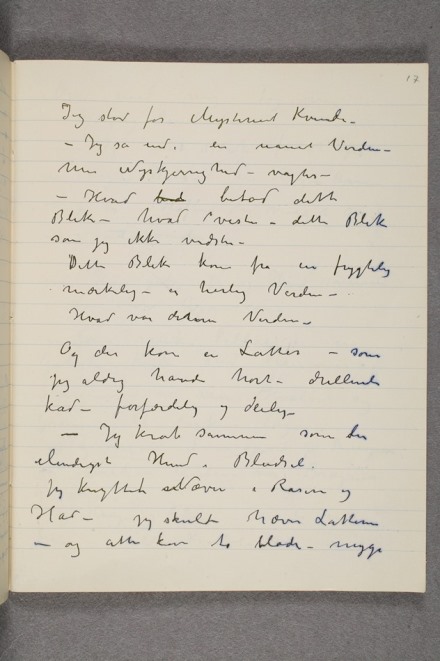 17
Jeg stod for Mysteriet Kvinde –
– Jeg så ind i en uanet Verden –
Min Nysgjerrighed – vagtes –
– Hvad betød dette
Blik – hvad viste – dette Blik
som jeg ikke vidste –
Dette Blik kom fra en frygtelig
mærkelig – en herlig Verden –
Hvad var denne Verden –
Og der kom en Latter – som
jeg aldrig havde hørt – drillende
kåd – forfærdelig og deilig –
– Jeg krøb sammen som den
elendigste Hund i Blødsel.
Jeg knyttede Næven i Raseri og
Had – jeg skulde hævne Latteren
– og atter kom to bløde – nøgge